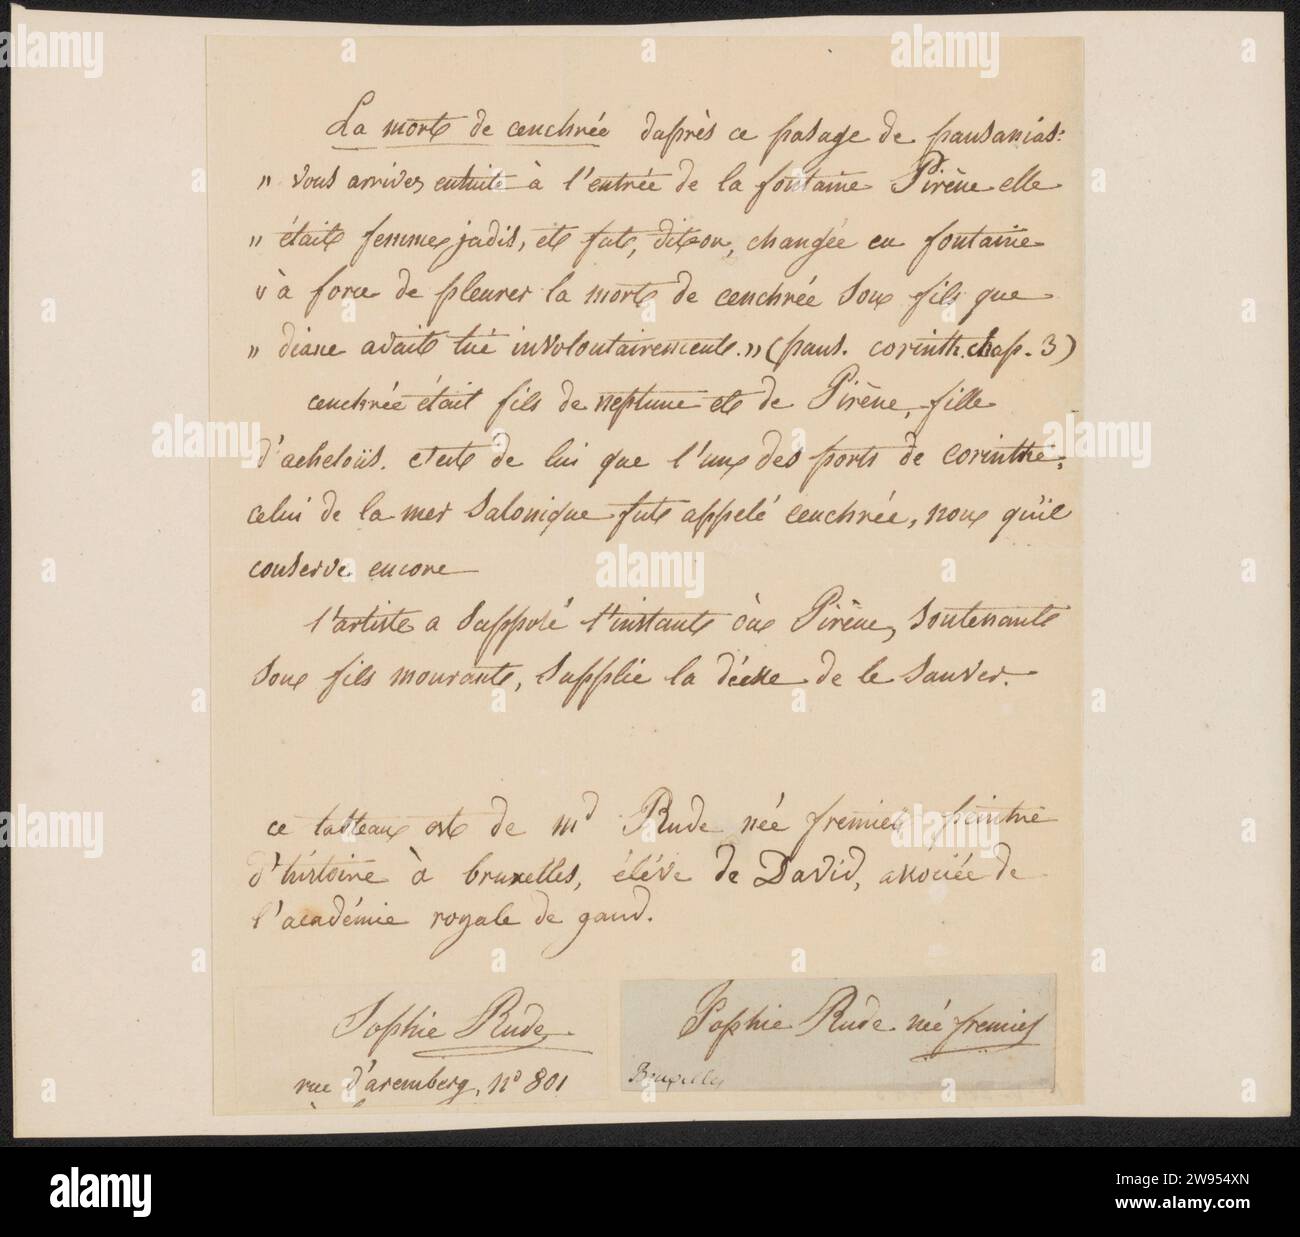 La mort de cenchrée daprès ce pasage de pausanias:
" vous arrives ensuite à l'entrée de la fontaine Pirène elle
" était femme jadis, et fut, dit on, changée en fontaine
" à force de pleurer la mort de cenchrée son fils que
" diane avait tué involontairement." (paus. corinth. chap. 3)
cenchrée était fils de neptune et de Pirène, fille
d'acheloüs. c'est de lui que l'un des ports de corinthe,
celui de la mer Salonique fut appelé cenchrée, nom qu'il
conserve encore
l'artiste a supposé l'instant où Pirène, soutenant
son fils mourant, supplie la déesse de le sauver.
ce tableau est de md Rude née fremiet peintre
d'histoire à bruxelles, élève de David, associée de
l'académie royale de gand.
Sophie Rude
rue d'aremberg, no 801
Sophie Rude née fremiet
Bruxelles
alamy
Image ID: 2W954XN
www.alamy.com